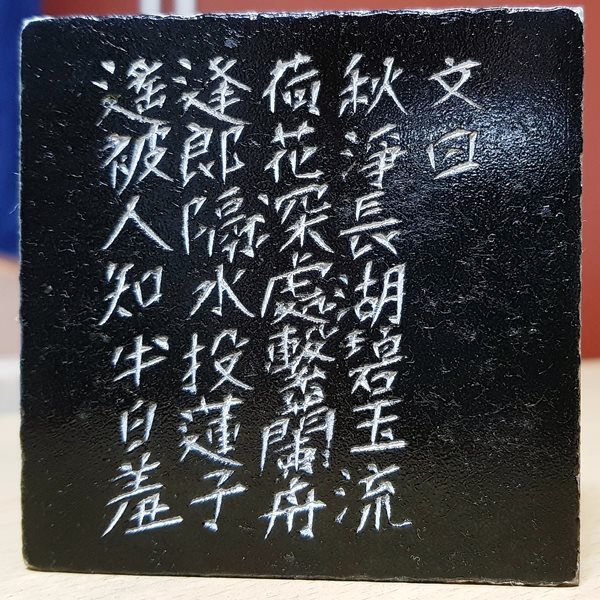 文曰
秋淨長湖碧玉流
荷花深處繫蘭舟
逢郎隔水投蓮子
遙被人知半日羞